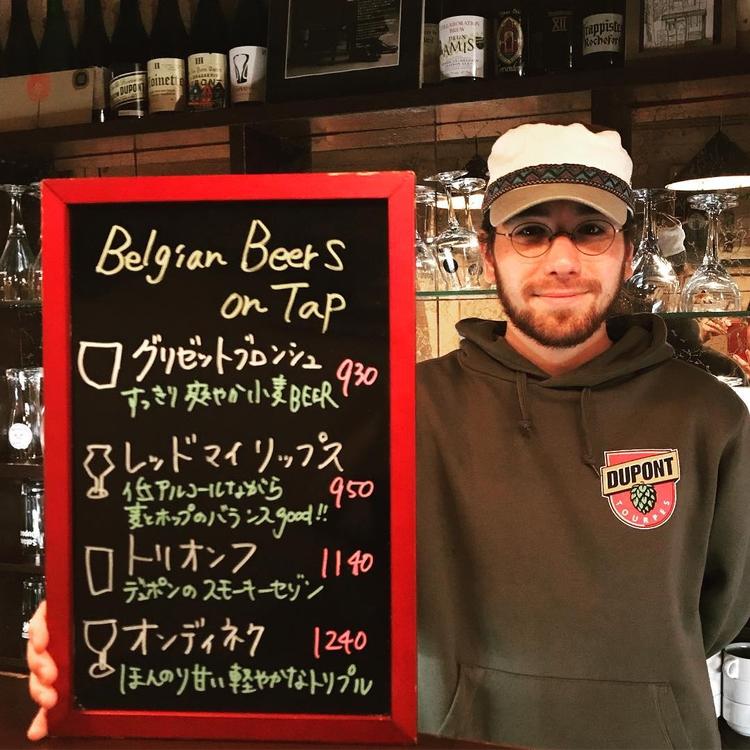 COLLABORATION
BREW
DEUX
AMIS
XII
Trappistes
Rochefort
DUPONT
Moinette
Belgian Beers
on Tap
グリゼットブロンシュ 930
すっきり爽やか小麦BEER
レッドマイリップス
低アルコールながら 950
麦とホップのバランスgood!!
トリオンフ 1140
デュポンのスモーキーセゾン
オンディネク 1240
ほんのり甘い軽やかなトリプル
DUPONT
TOURPES